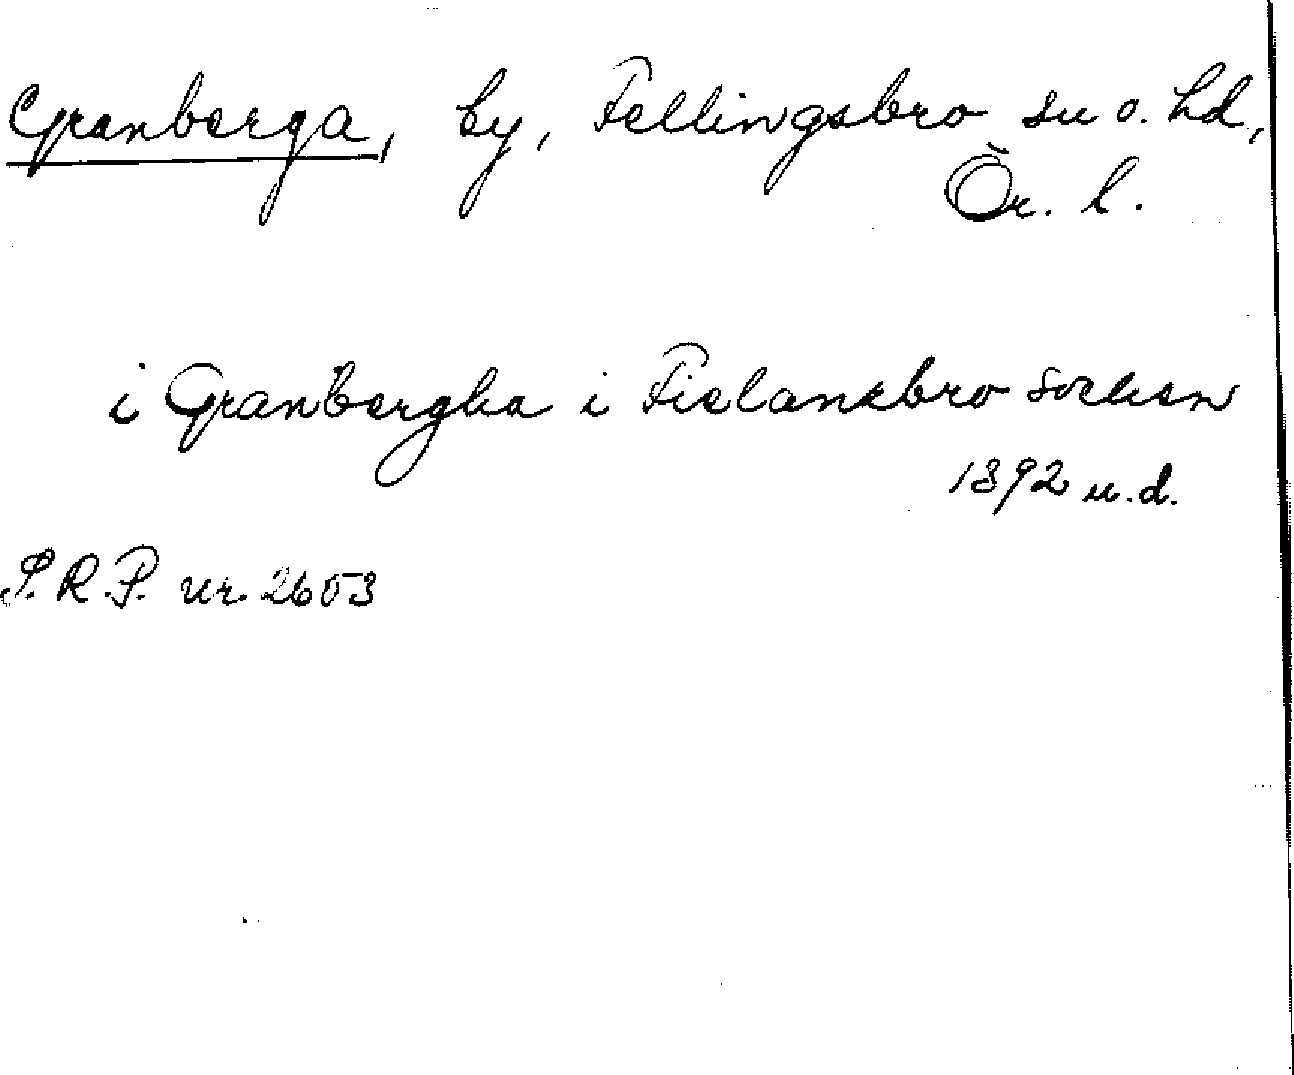 Granberga, by, Fellingsbro sn o. hd,
Ör. l.
i Granbergha i Fielansbro sochen
1392 u.d.
S.R.P. nr. 2603